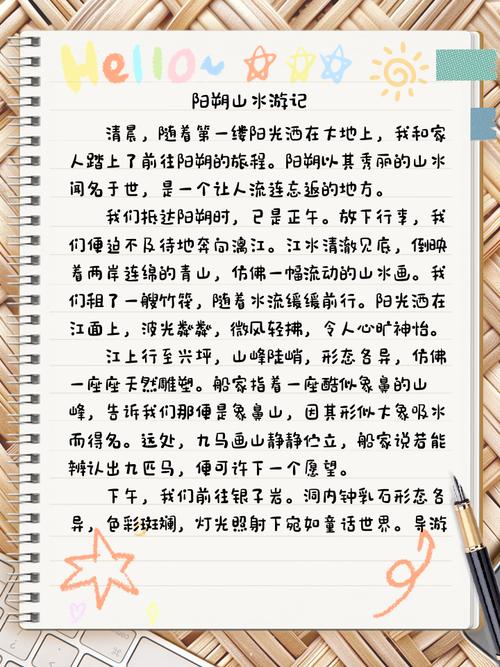 Hello~
阳朔山水游记
清晨，随着第一缕阳光洒在大地上，我和家
人踏上了前往阳朔的旅程。阳朔以其秀丽的山水
闻名于世，是一个让人流连忘返的地方。
我们抵达阳朔时，已是正午。放下行李，我
们便迫不及待地奔向漓江。江水清澈见底，倒映
着两岸连绵的青山，仿佛一幅流动的山水画。我
们租了一艘竹筏，随着水流缓缓前行。阳光洒在
江面上，波光粼粼，微风轻拂，令人心旷神怡。
江上行至兴坪，山峰陡峭，形态各异，仿佛
一座座天然雕塑。船家指着一座酷似象鼻的山
峰，告诉我们那便是象鼻山，因其形似大象吸水
而得名。远处，九马画山静静伫立，船家说若能
辨认出九匹马，便可许下一个愿望。
下午，我们前往银子岩。洞内钟乳石形态各
异，色彩斑斓，灯光照射下宛如童话世界。导游